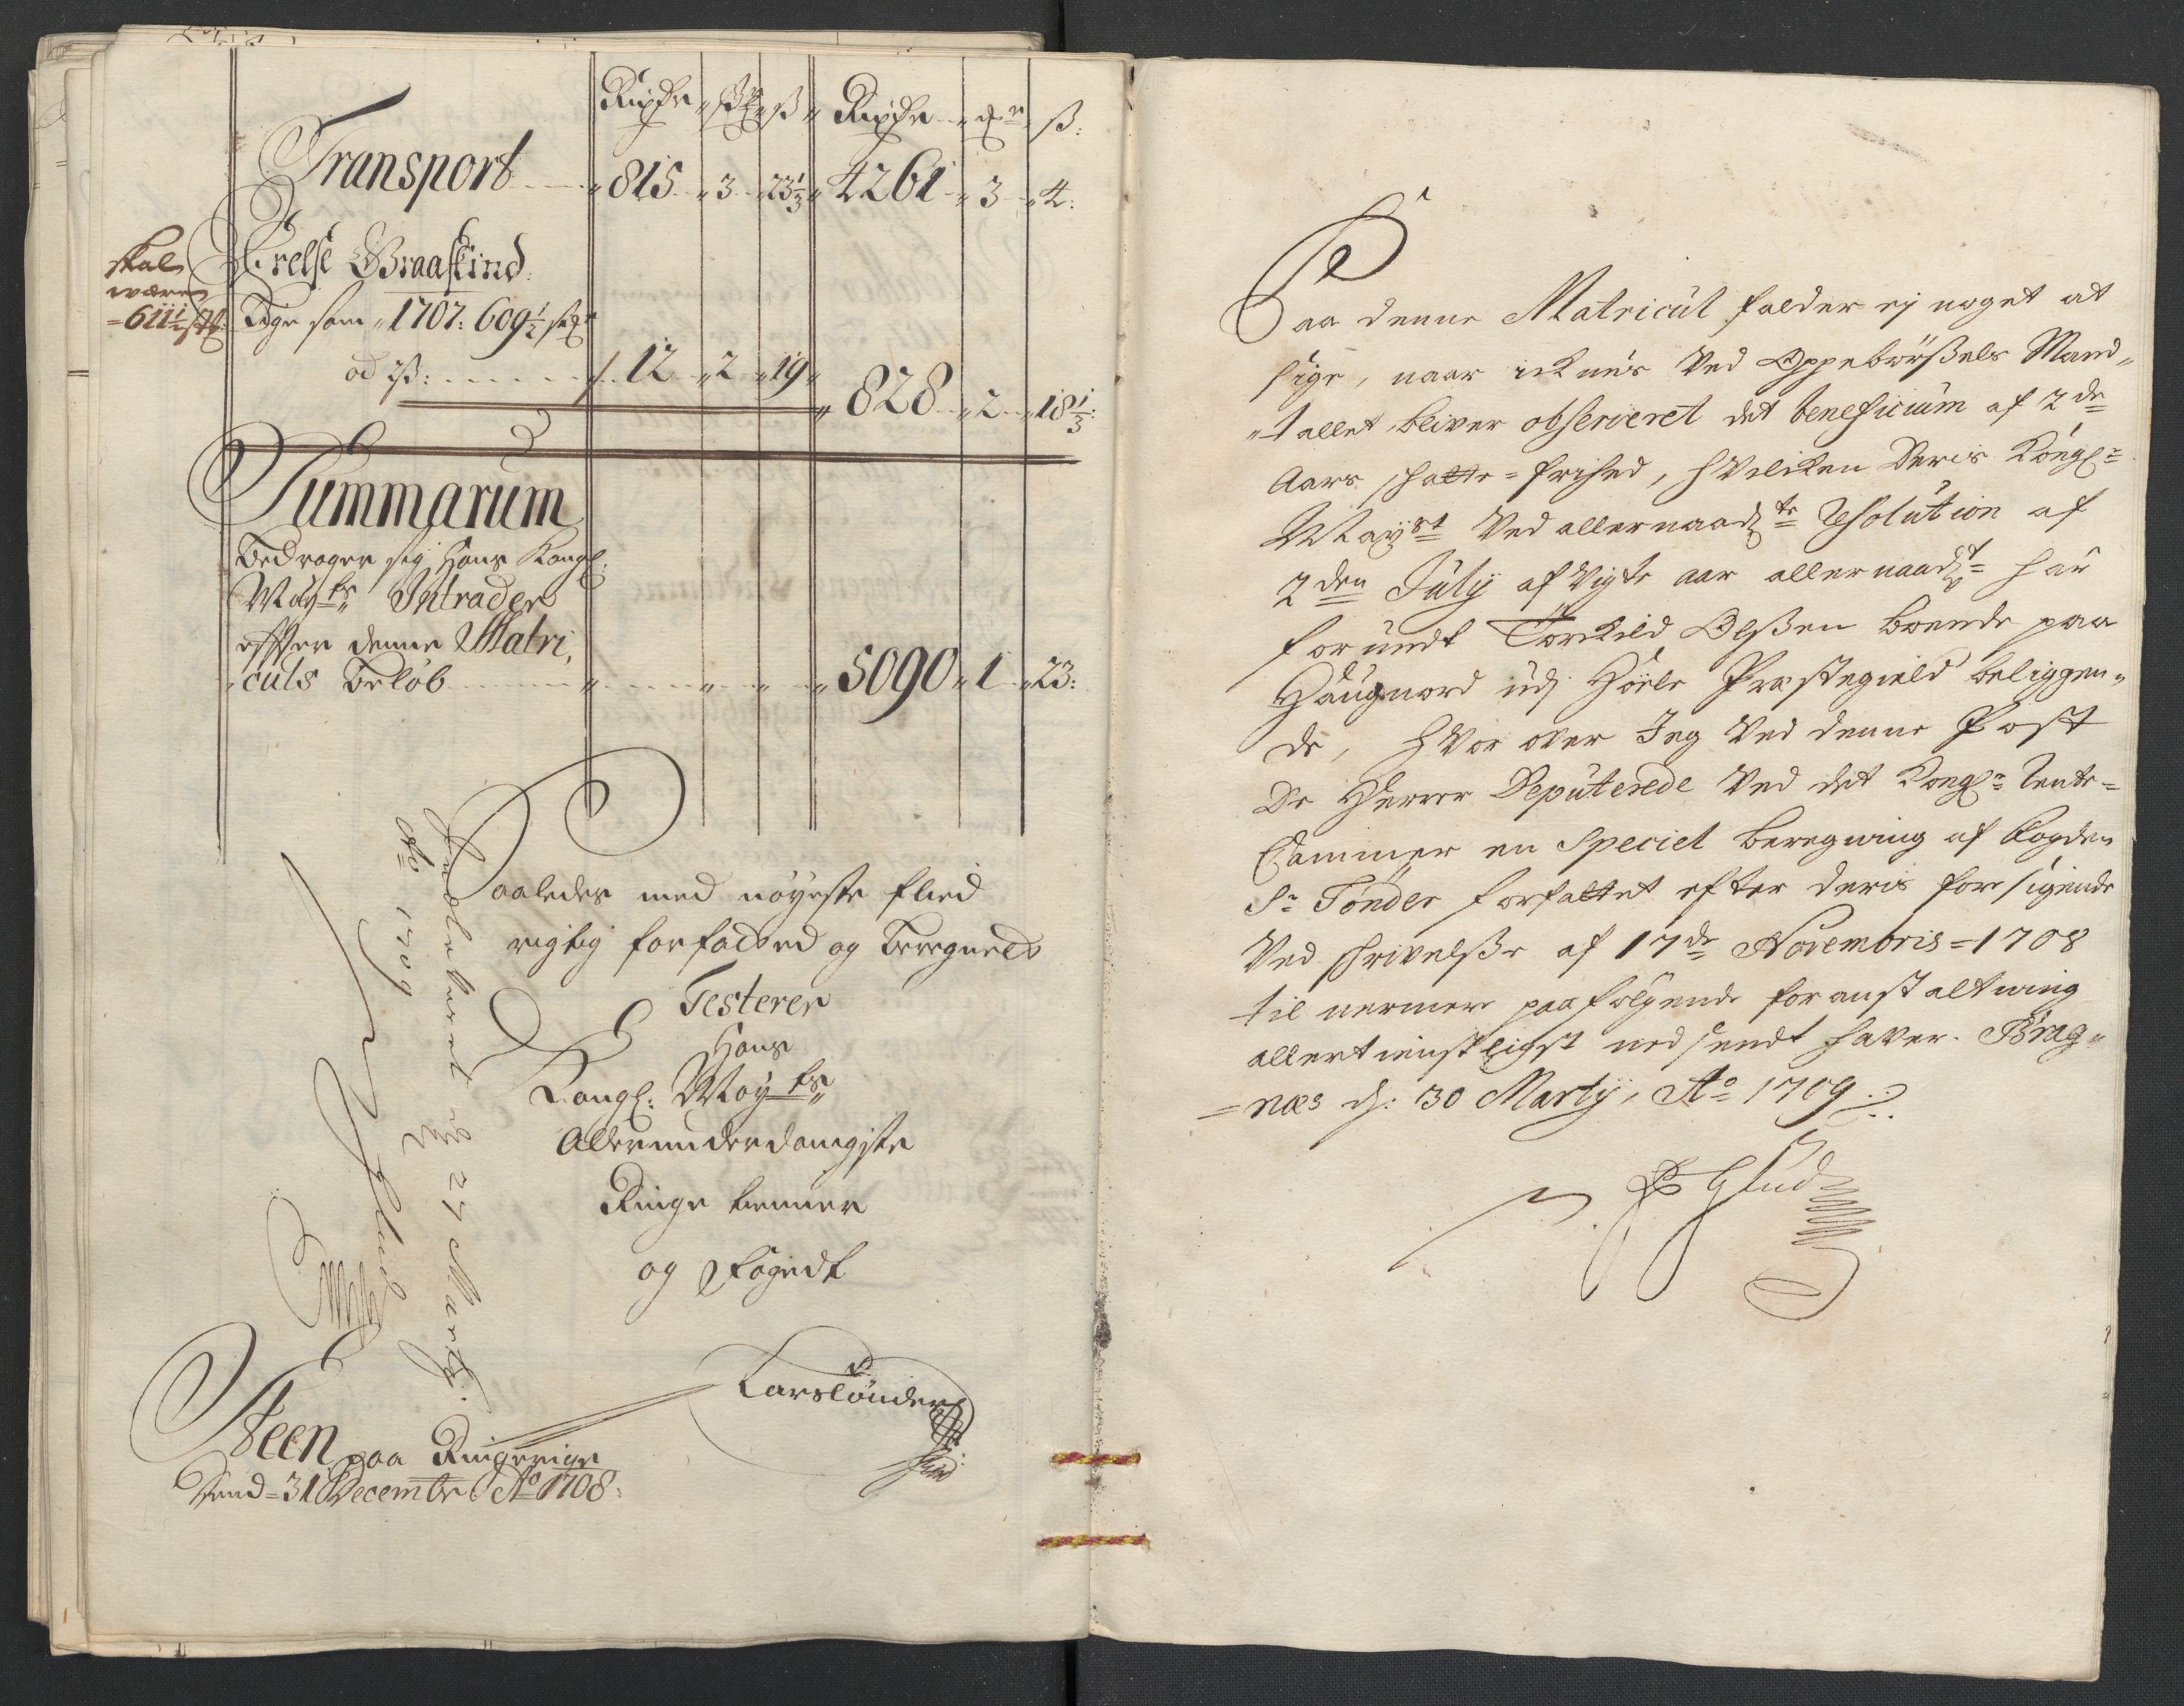 Rixdr ß Rixdr ß:
Transport 815 3 23 1/3 4261 3 4:
skal
være
611 1/2
Erelse Graaskind
Lige som 1707: 609 1/2
ad 1ß: 12 2 19
828 2 18 1/3:
Summarum
Bedrager sig Hans Kongl:
Mayts Intrader
effter denne Matri,
culs Beløb 5090 1 23:
Saaledes med nøyeste flied
rigtig forfatted og Beregnet
Testerer
Hans
Kongl: Mayts
Allerunderdanigste
Ringe tienner
og Fogedt
Lars Tønder
Steen paa Ringerige
dend 31 Decembr Ao 1708:
27 Marty
Ao 1709
Glud
Paa denne Matricul falder ej noget at
sige, naar ickuns Ved Oppebørßels Mand„
„tallet bliver observeret det beneficium af 2de
Aars schatte=frihed, hvilcken Deris Kongl:
Mayst Ved allernaadte Resolution af
2den July afvigte aar allernaadt har
forundt Torkild Olßen boende paa
Haugnord udj Hőele Præstegield beliggen„
de, hvor over Jeg Ved denne Post
De Herrer Deputerede Ved det Kongl: Rente=
Cammer en Speciel beregning af Fogden
Sr Tønder forfattet efter deris fore sigende
Ved schrivelße af 17de Novembris=1708
til nermere paafølgende foranstaltning
allertienstligst nedsendt haver. Brag„
=næs d: 30 Marty, Ao 1709
Glud